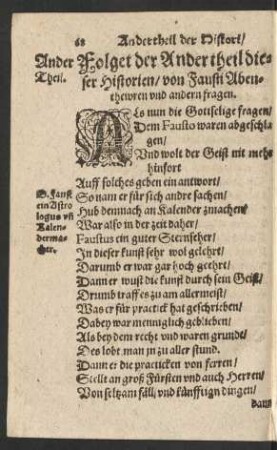 68 Ander theil der Histori/
Ander Theil.
Folget der Ander theil die-
ser Historien/ von Fausti Aben-
thewren vnd andern fragen.
ALs nun die Gottselige fragen/
Dem Fausto waren abgeschla-
gen/
Vnd wolt der Geist nit mehr
hinfort
Auff solches geben ein antwort/
D. Faust
ein Astro
logus vñ
Kalen-
derma-
cher.
So nam er für sich andre sachen/
Hub demnach an Kalender zmachen/
War also in der zeit daher/
Faustus ein guter Sternseher/
In dieser kunst sehr wol gelehrt/
Darumb er war gar hoch geehrt/
Dann er wust die kunst durch sein Geist/
Drumb traff es zu am allermeist/
Was er für practick hat geschrieben/
Dabey war menniglich geblieben/
Als bey dem recht vnd waren grundt/
Des lobt man jn zu aller stund.
Dann er die practicken von ferren/
Stellt an groß Fürsten vnd auch Herren/
Von seltzam fäll/ vnd künfftign dingen/
dann